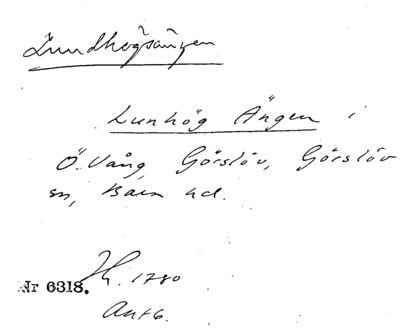 Lundhögsängen
Lunhög Ängen i
Ö. Vång, Görslöv, Görslöv
sn, Bara hd.
H. 1780
Nr 6318.
Ant 6.